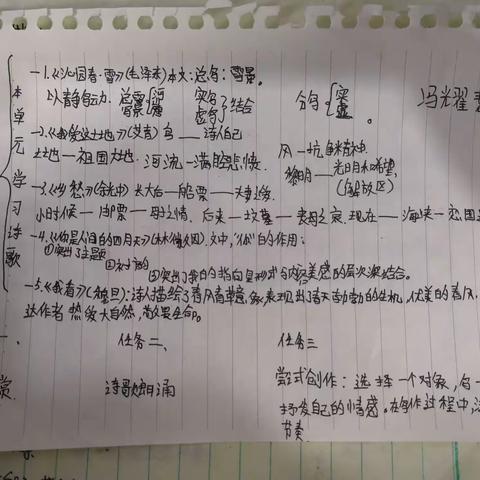 本单元学习诗歌
一1.《沁园春·雪》(毛泽东)本文:总写:雪景。
以静制动. 总写 实写 虚写 结合 分写 冯光耀
一2.《我爱这土地》(艾青)鸟——诗人自己 风—抗争精神
土地—祖国大地. 河流—满腔悲愤. 黎明—光明和希望,(解放区)
一3.《乡愁》(余光中)长大后—船票——夫妻之
小时候—邮票—母子之情. 后来—坟墓—丧母之哀. 现在—海峡—恋国
一4.《你是人间的四月天》(林徽因). 文中,"你"的作用:
①突出了主题 ②
③突出了诗的 内容美感的层次 结合。
一5.《我看》(穆旦):诗人描绘了春风青草 表现出了春天勃勃的生机,优美的春风,
达作者 热爱大自然,
一、 任务二、 任务三
赏 诗歌朗诵 尝试创作:选择一个对象,句一
抒发自己的情感。在创作过程中,注
节奏